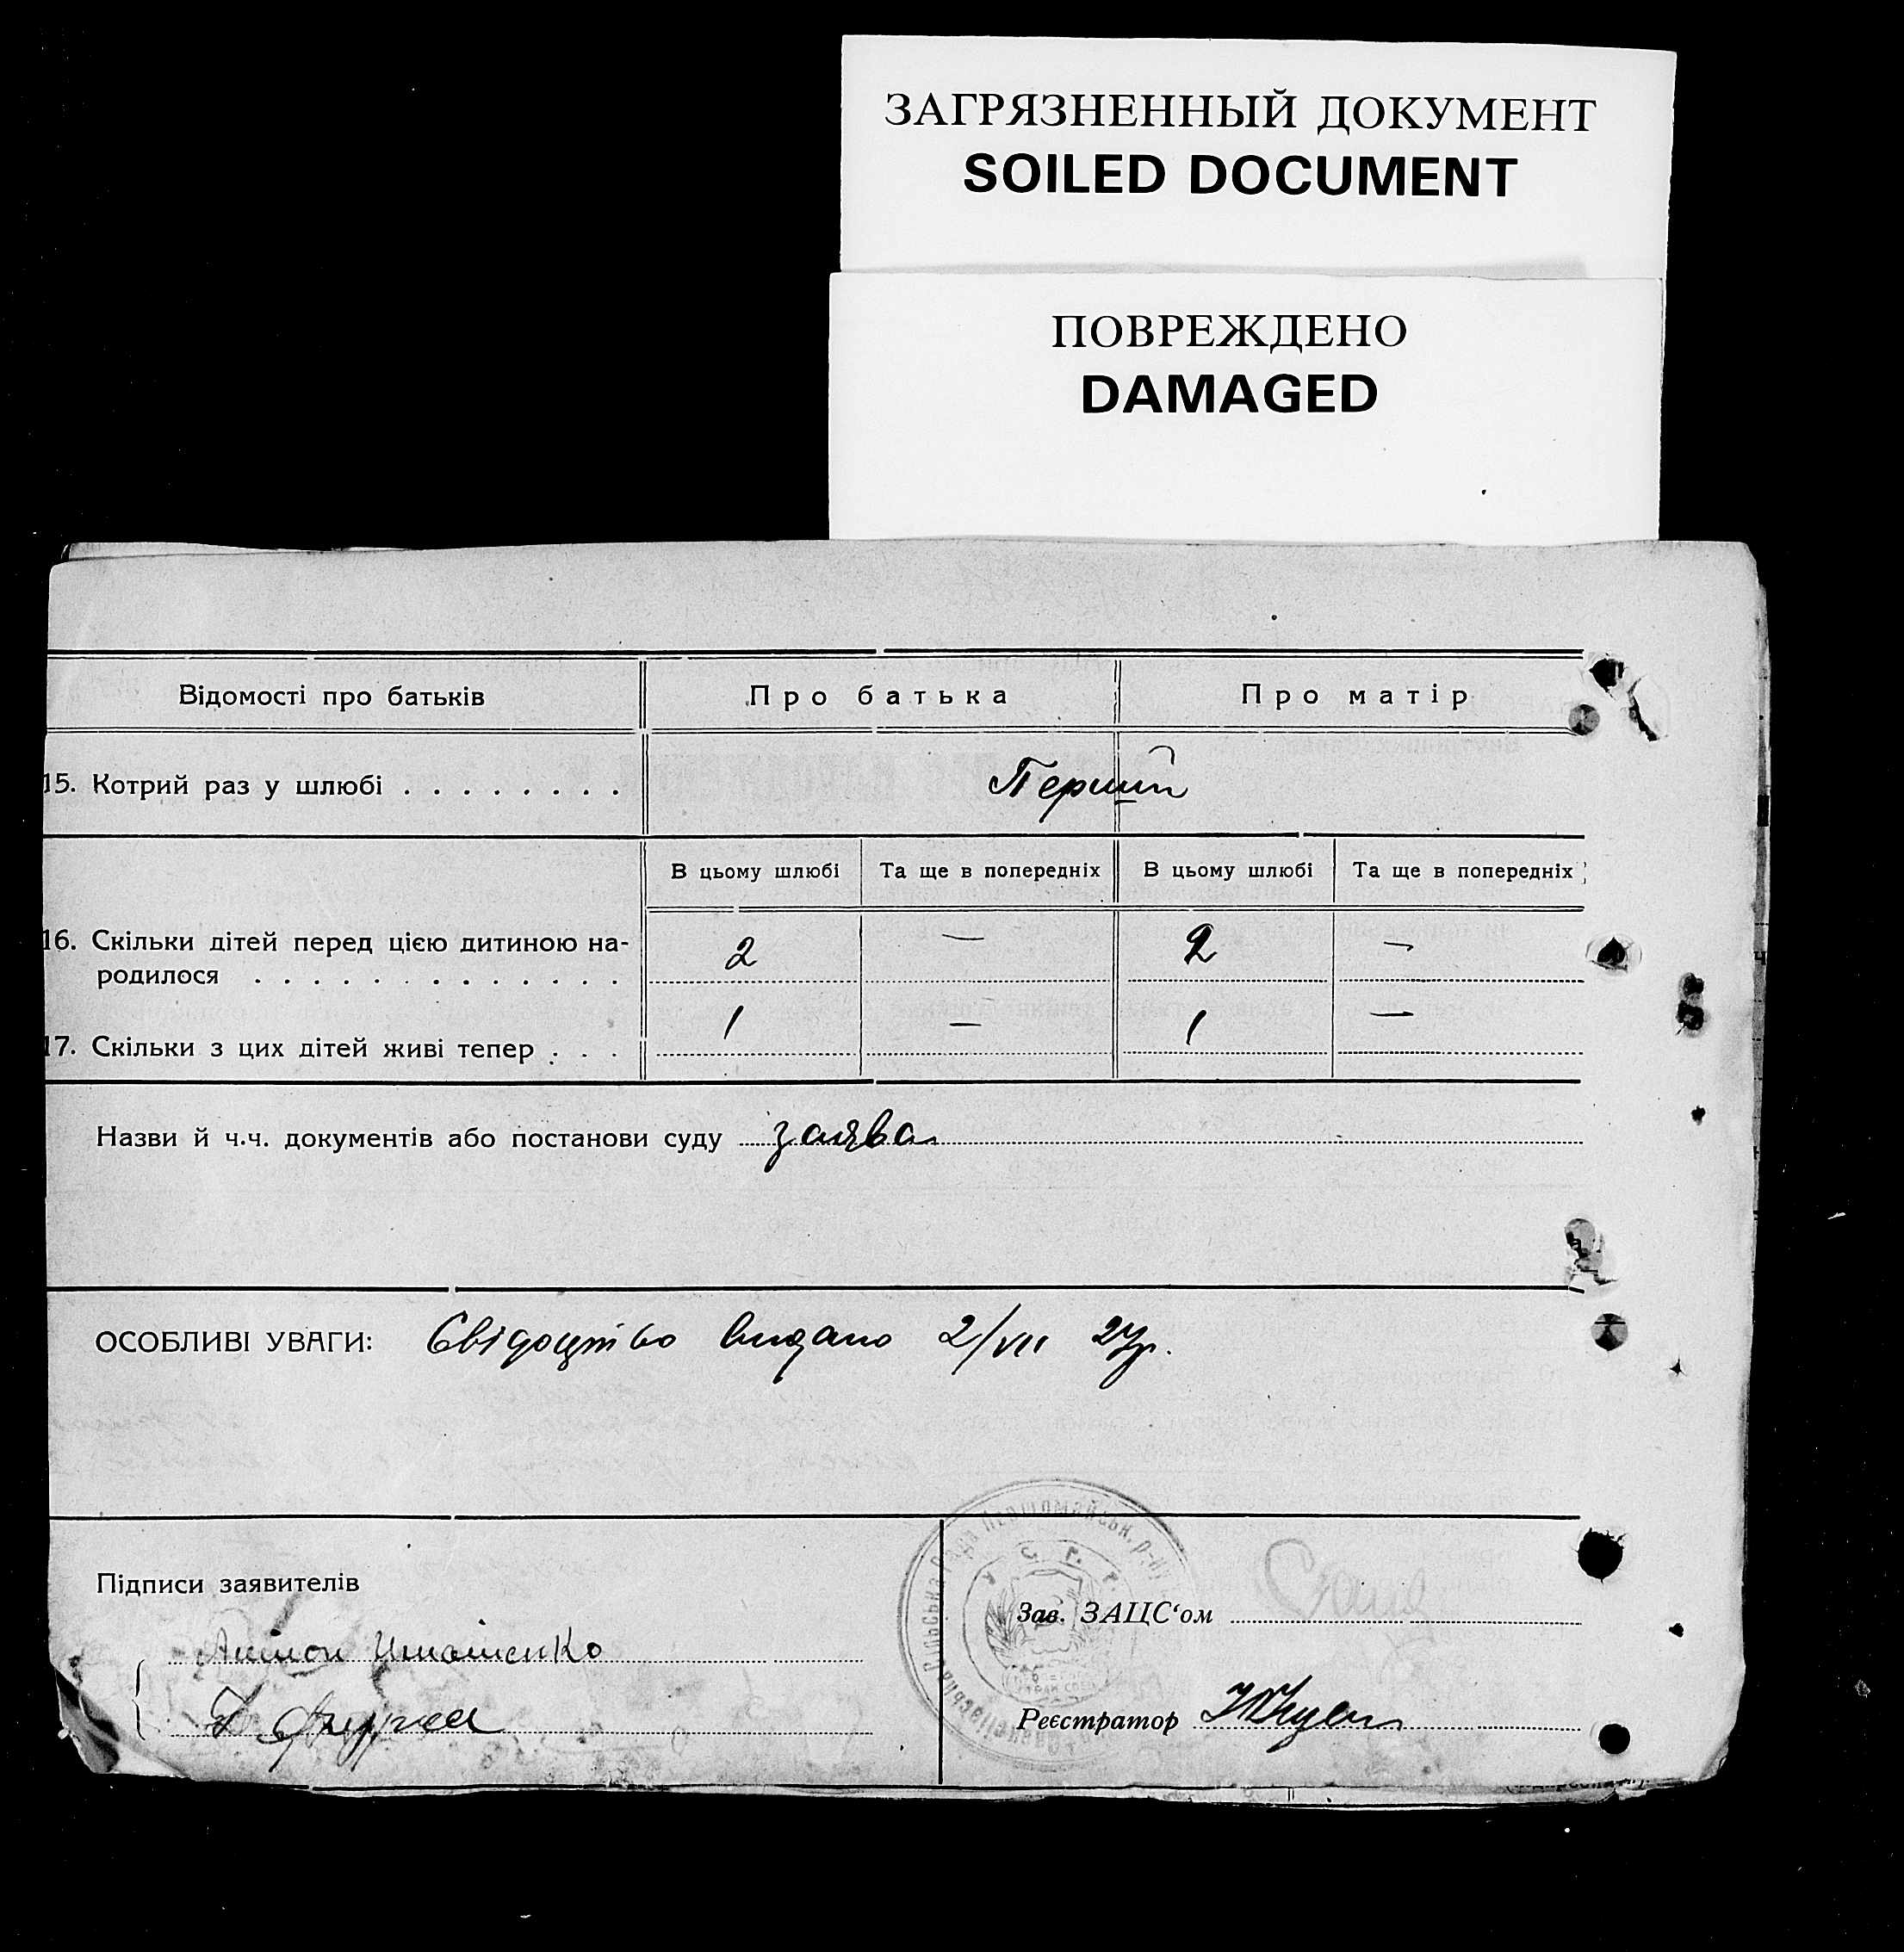 ЗАГРЯЗНЕННЫЙ ДОКУМЕНТ
SOILED DOCUMENT
ПОВРЕЖДЕНО
DAMAGED
Відомості про батьків Про батька Про матір
15. Котрий раз у шлюбі . . . . . . . . Перший
В цьому шлюбі Та ще в попередніх В цьому шлюбі Та ще в попередніх
16. Скільки дітей перед цією дитиною на- 2 — 2 —
родилося . . . . . . . . . . . . .
17. Скільки з цих дітей живі тепер . . . 1 — 1 —
Назви й ч.ч. документів або постанови суду заява
ОСОБЛИВІ УВАГИ: Свідоцтво видано 2/VII 27р.
Підписи заявителів
Зав. ЗАЦС‘ом
Антон
Реєстратор
Сільська Рада Першомайськ. р-ну
У. С. Р. Р.